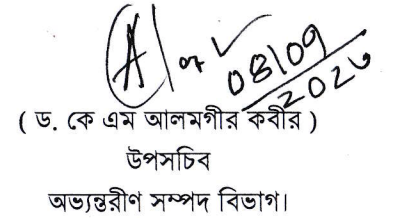 08/09
( ড. কে এম আলমগীর কবীর )
উপসচিব
অভ্যন্তরীণ সম্পদ বিভাগ।